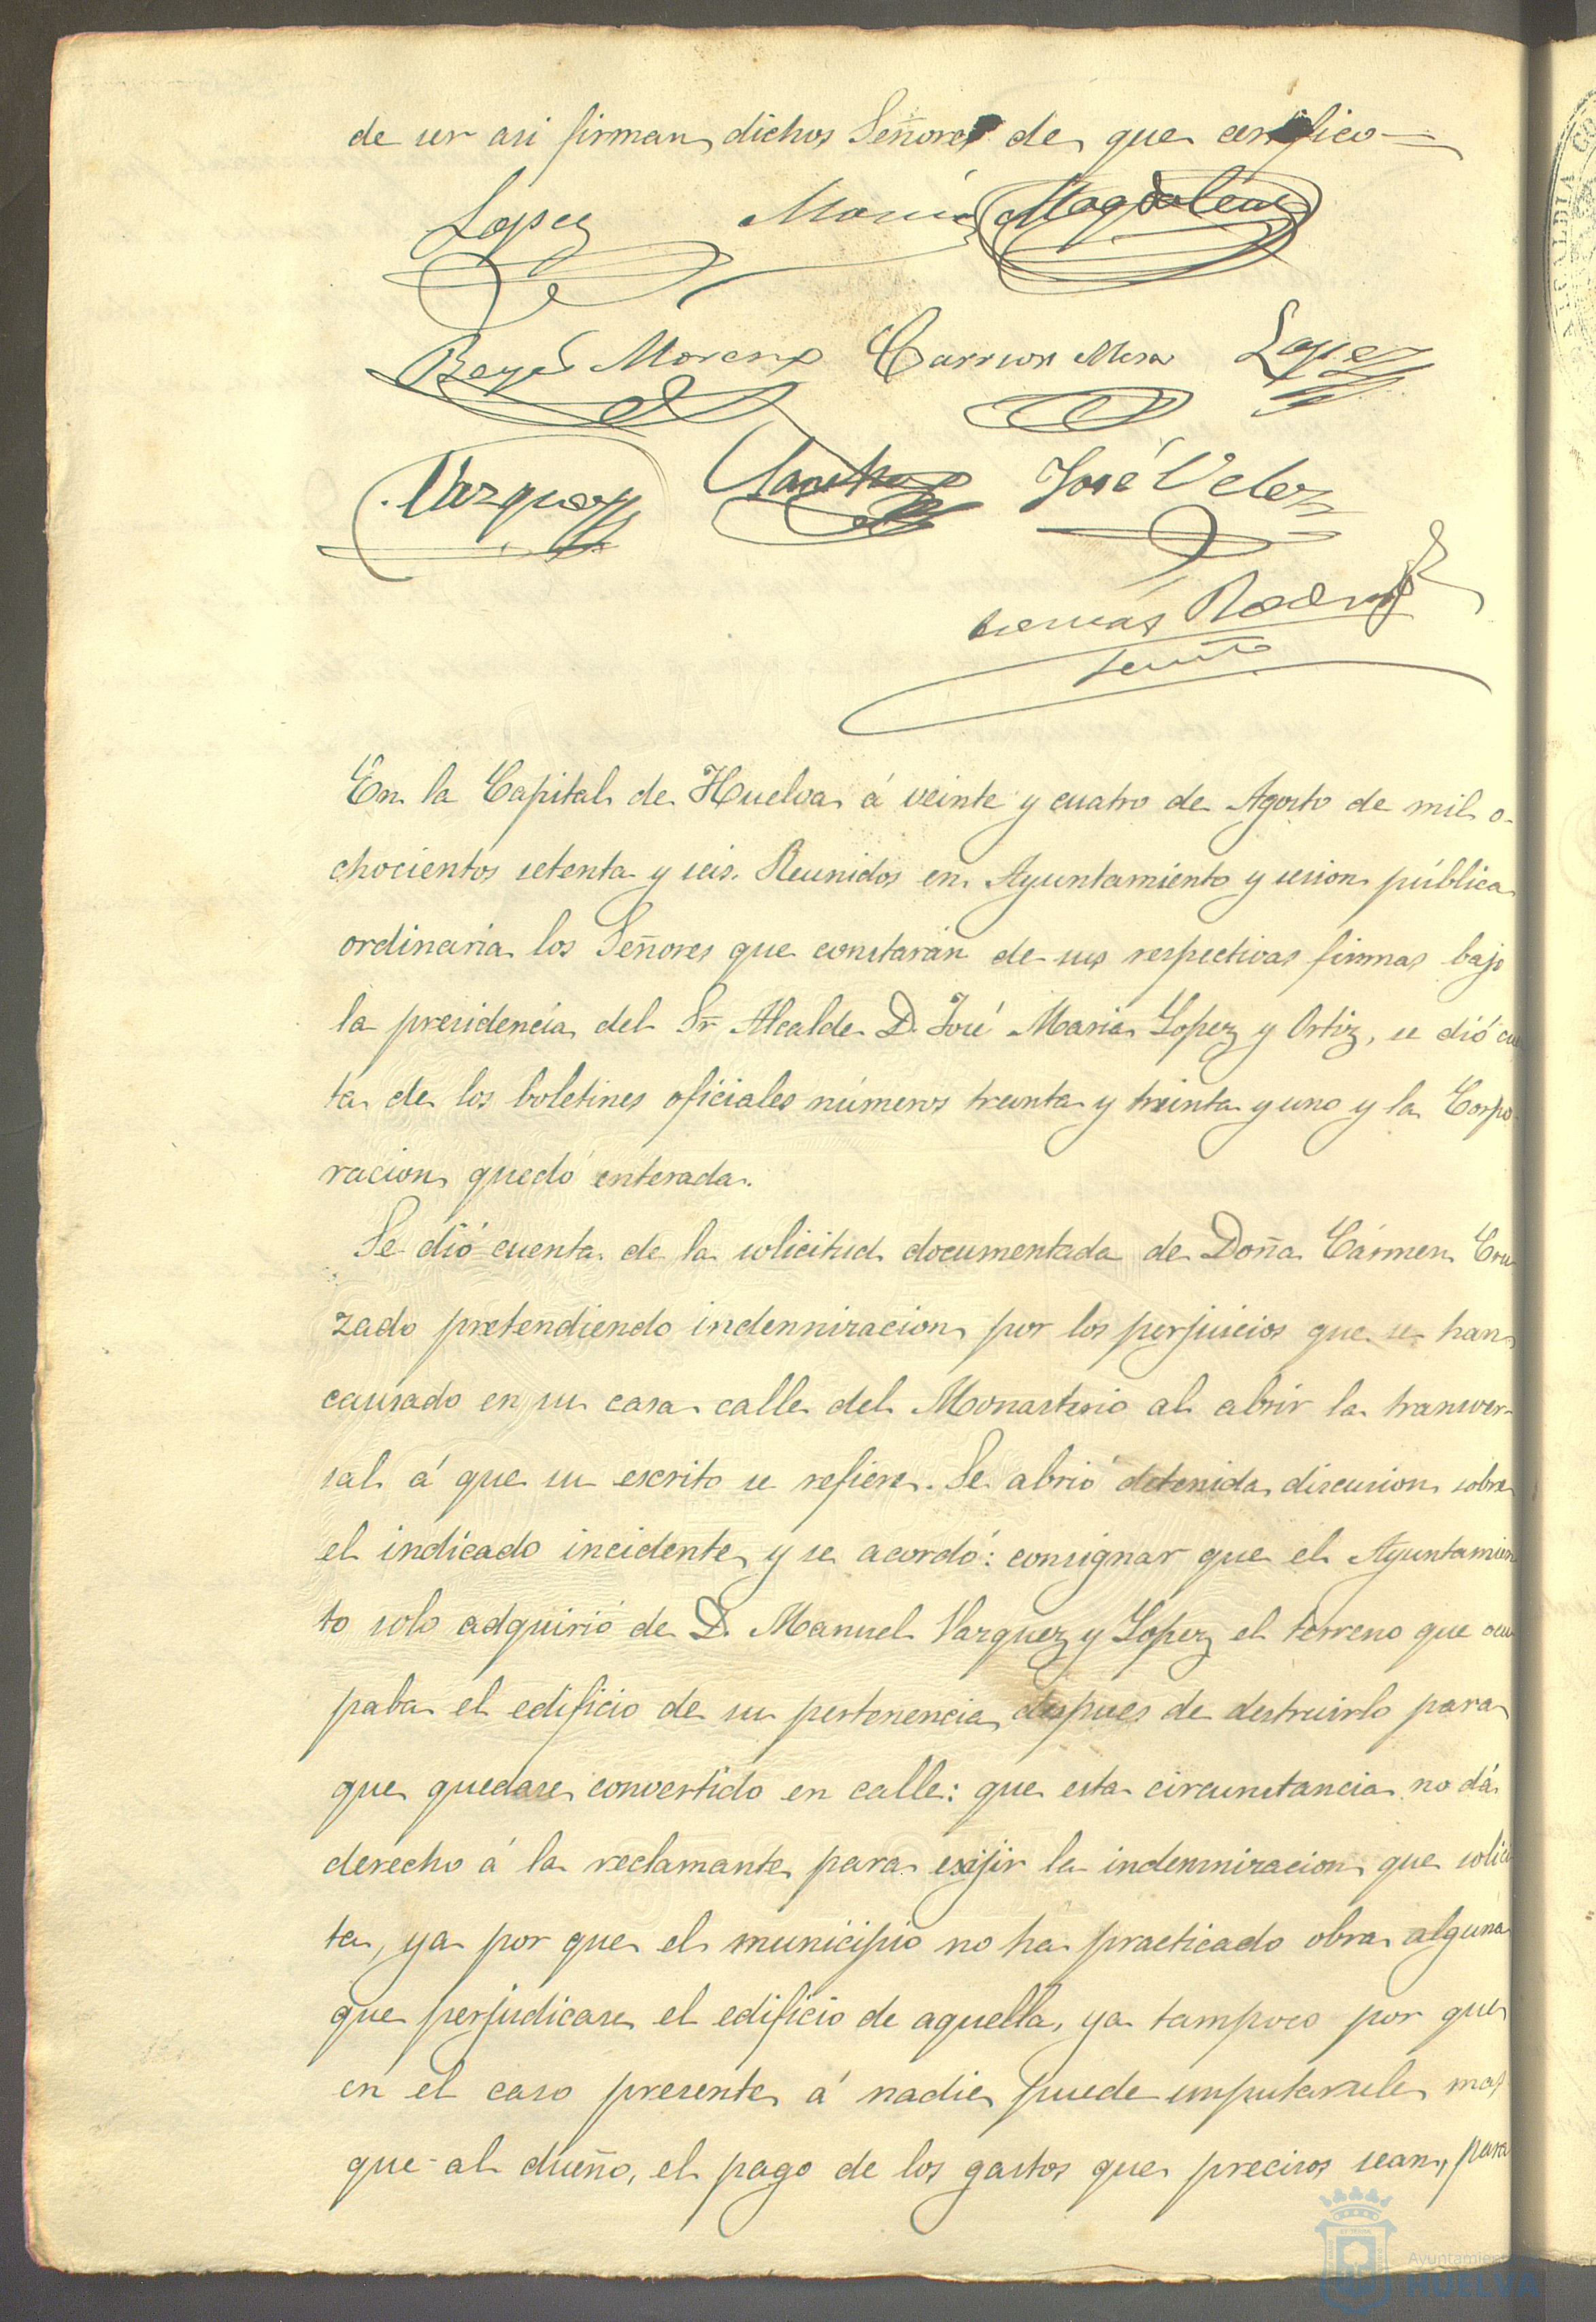 de ser asi firman dichos Señores de que certifico
Lopez Magdalena
Reyes Moreno Carrion Mora Lopez
Vazquez Sanchez José Velez
Tomás
En la Capital de Huelva á veinte y cuatro de Agosto de mil o-
chocientos setenta y seis. Reunidos en Ayuntamiento y sesion pública
ordinaria los Señores que constarán de sus respectivas firmas bajo
la presidencia del Sr. Alcalde D. José Maria Lopez y Ortiz, se dió cu
ta de los boletines oficiales números treinta y treinta y uno y la Corpo-
racion quedó enterada.
Se dió cuenta de la solicitud documentada de Doña Cármen Cru
zado pretendiendo indennizacion por los perjuicios que se han
causado en su casa calle del Monasterio al abrir la transver-
sal á que su escrito se refiere. Se abrió detenida discusion sobre
el indicado incidente y se acordó: consignar que el Ayuntamien
to solo adquirió de D. Manuel Vazquez y Lopez el terreno que ocu
paba el edificio de su pertenencia despues de destruirlo para
que quedase convertido en calle: que esta circunstancia no dá
derecho á la reclamante para esijir la indemnizacion que solici
ta, ya por que el municipio no ha practicado obra alguna
que perjudicase el edificio de aquella, ya tampoco por que
en el caso presente á nadie puede imputarsele mas
que al dueño, el pago de los gastos que precisos sean, para
Ayuntamie
HUELVA